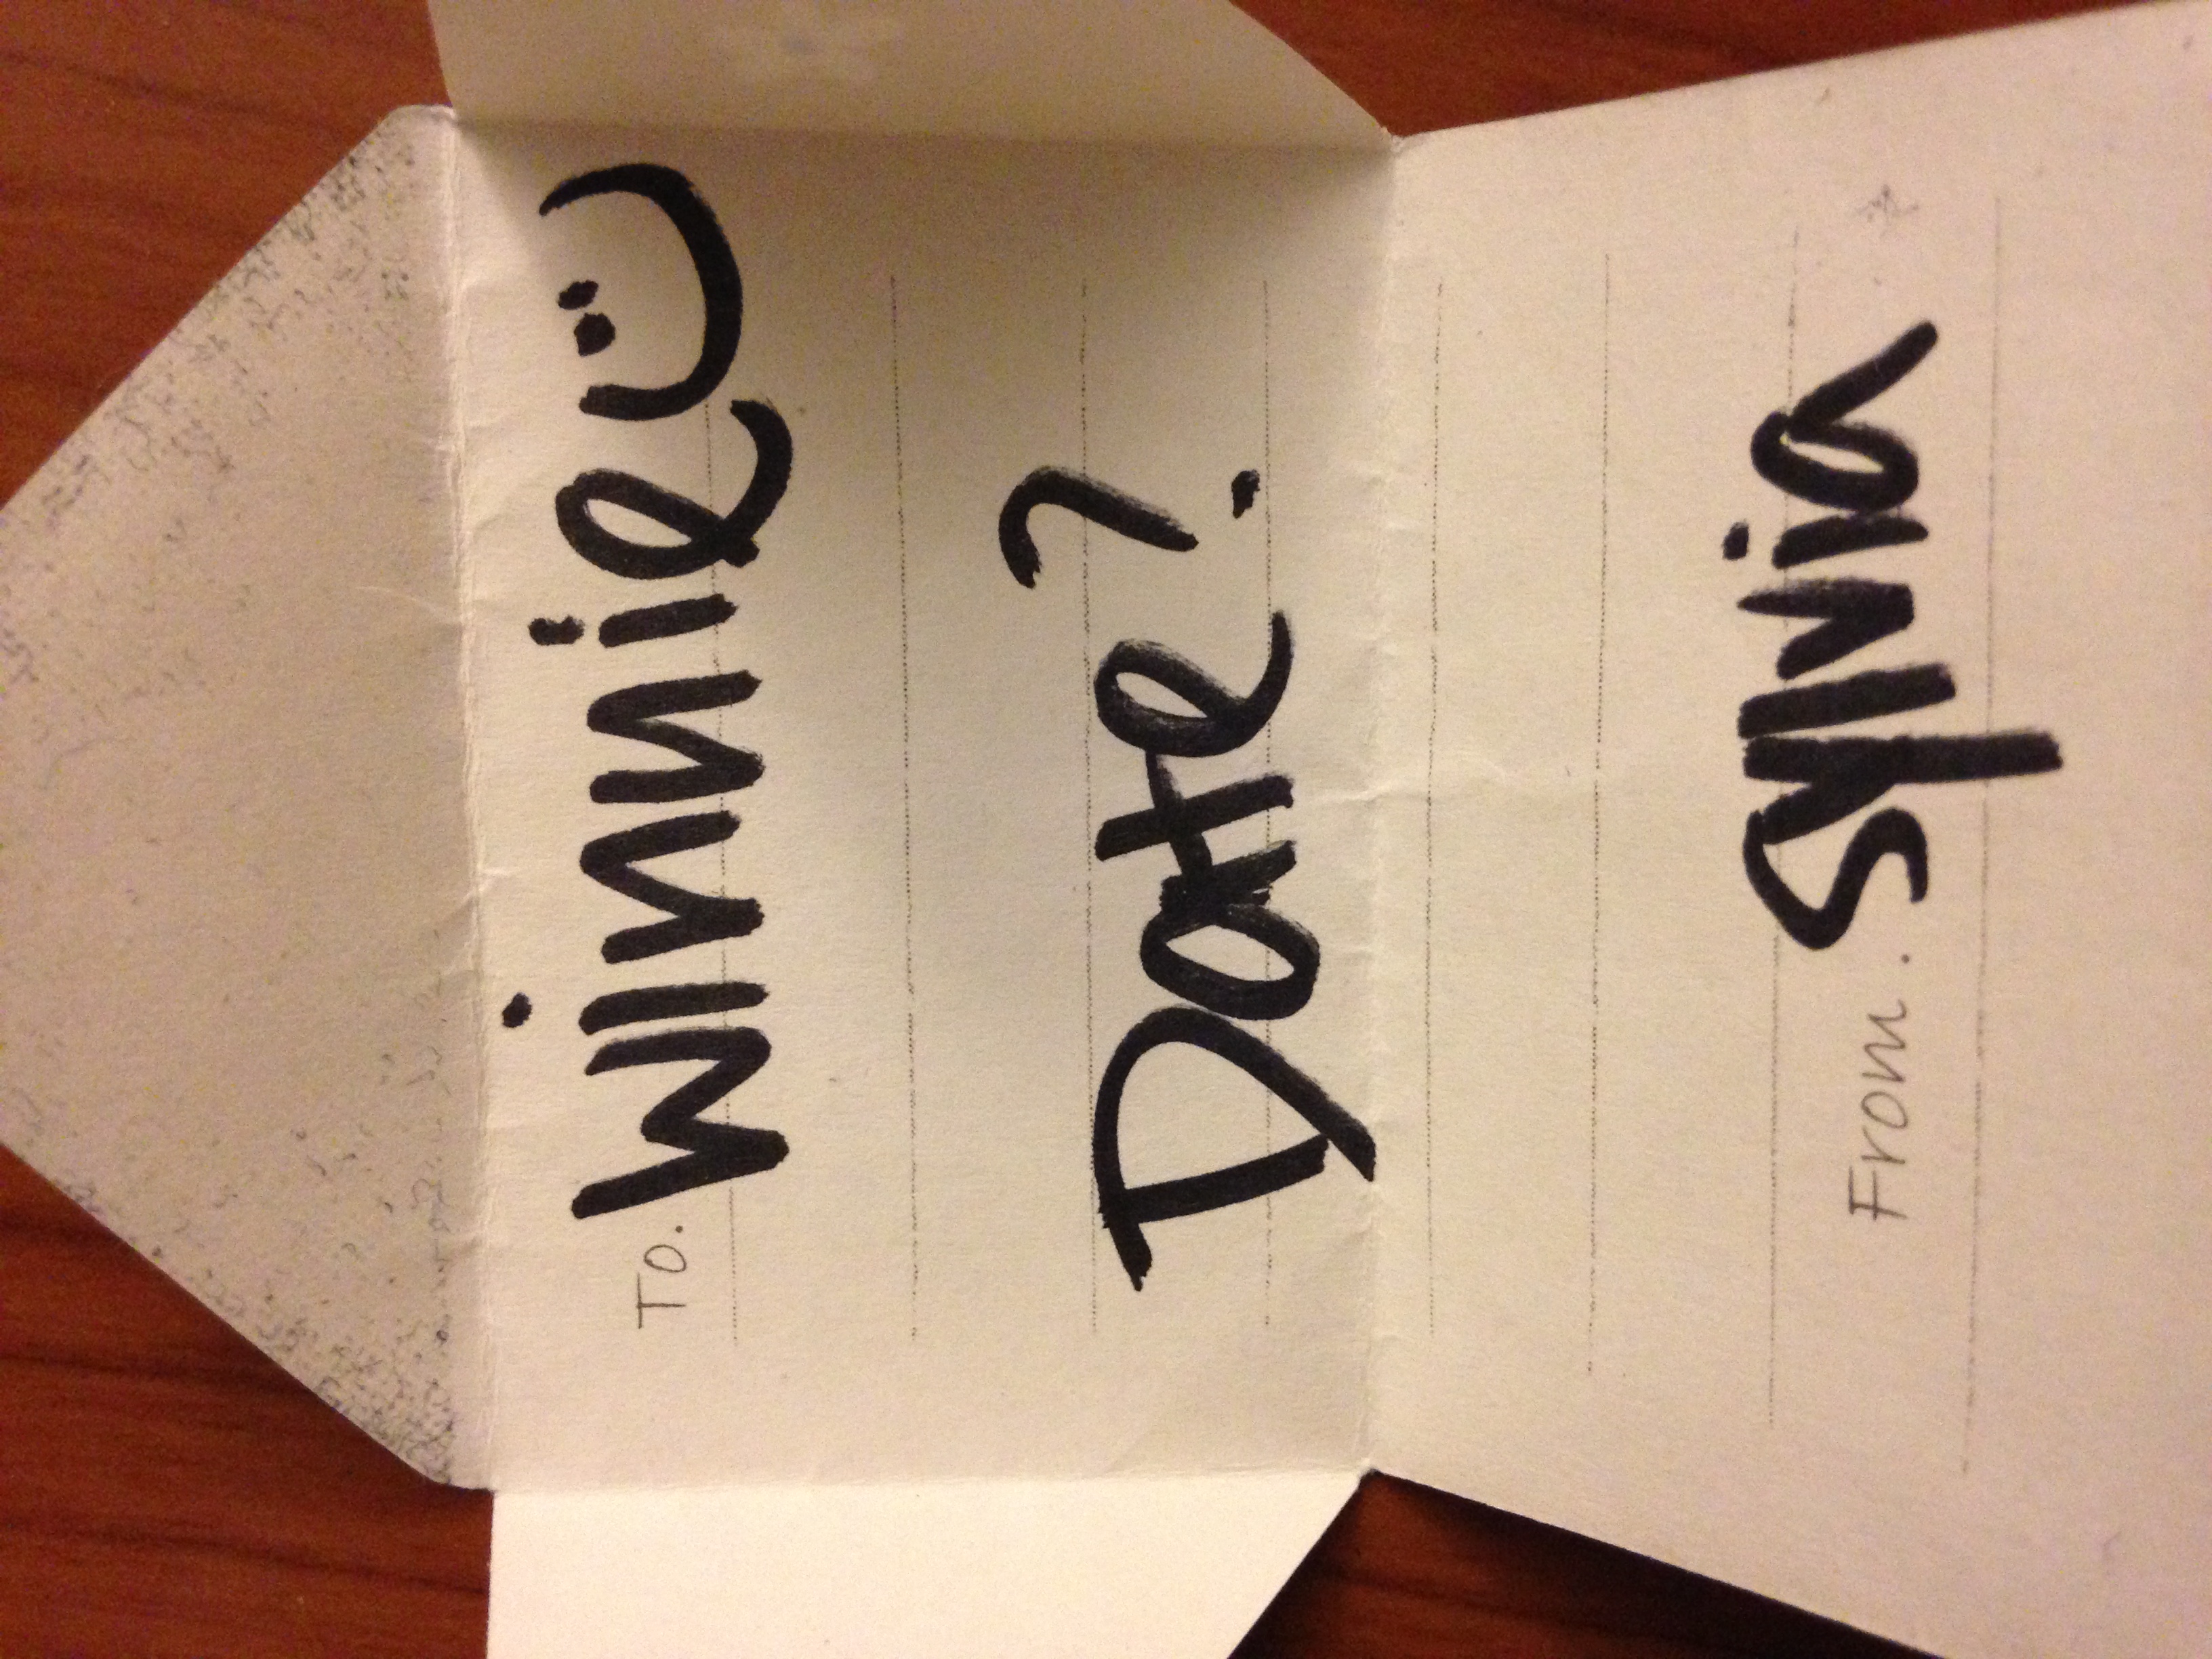 To. Winnie
Date?
From. Sylvia